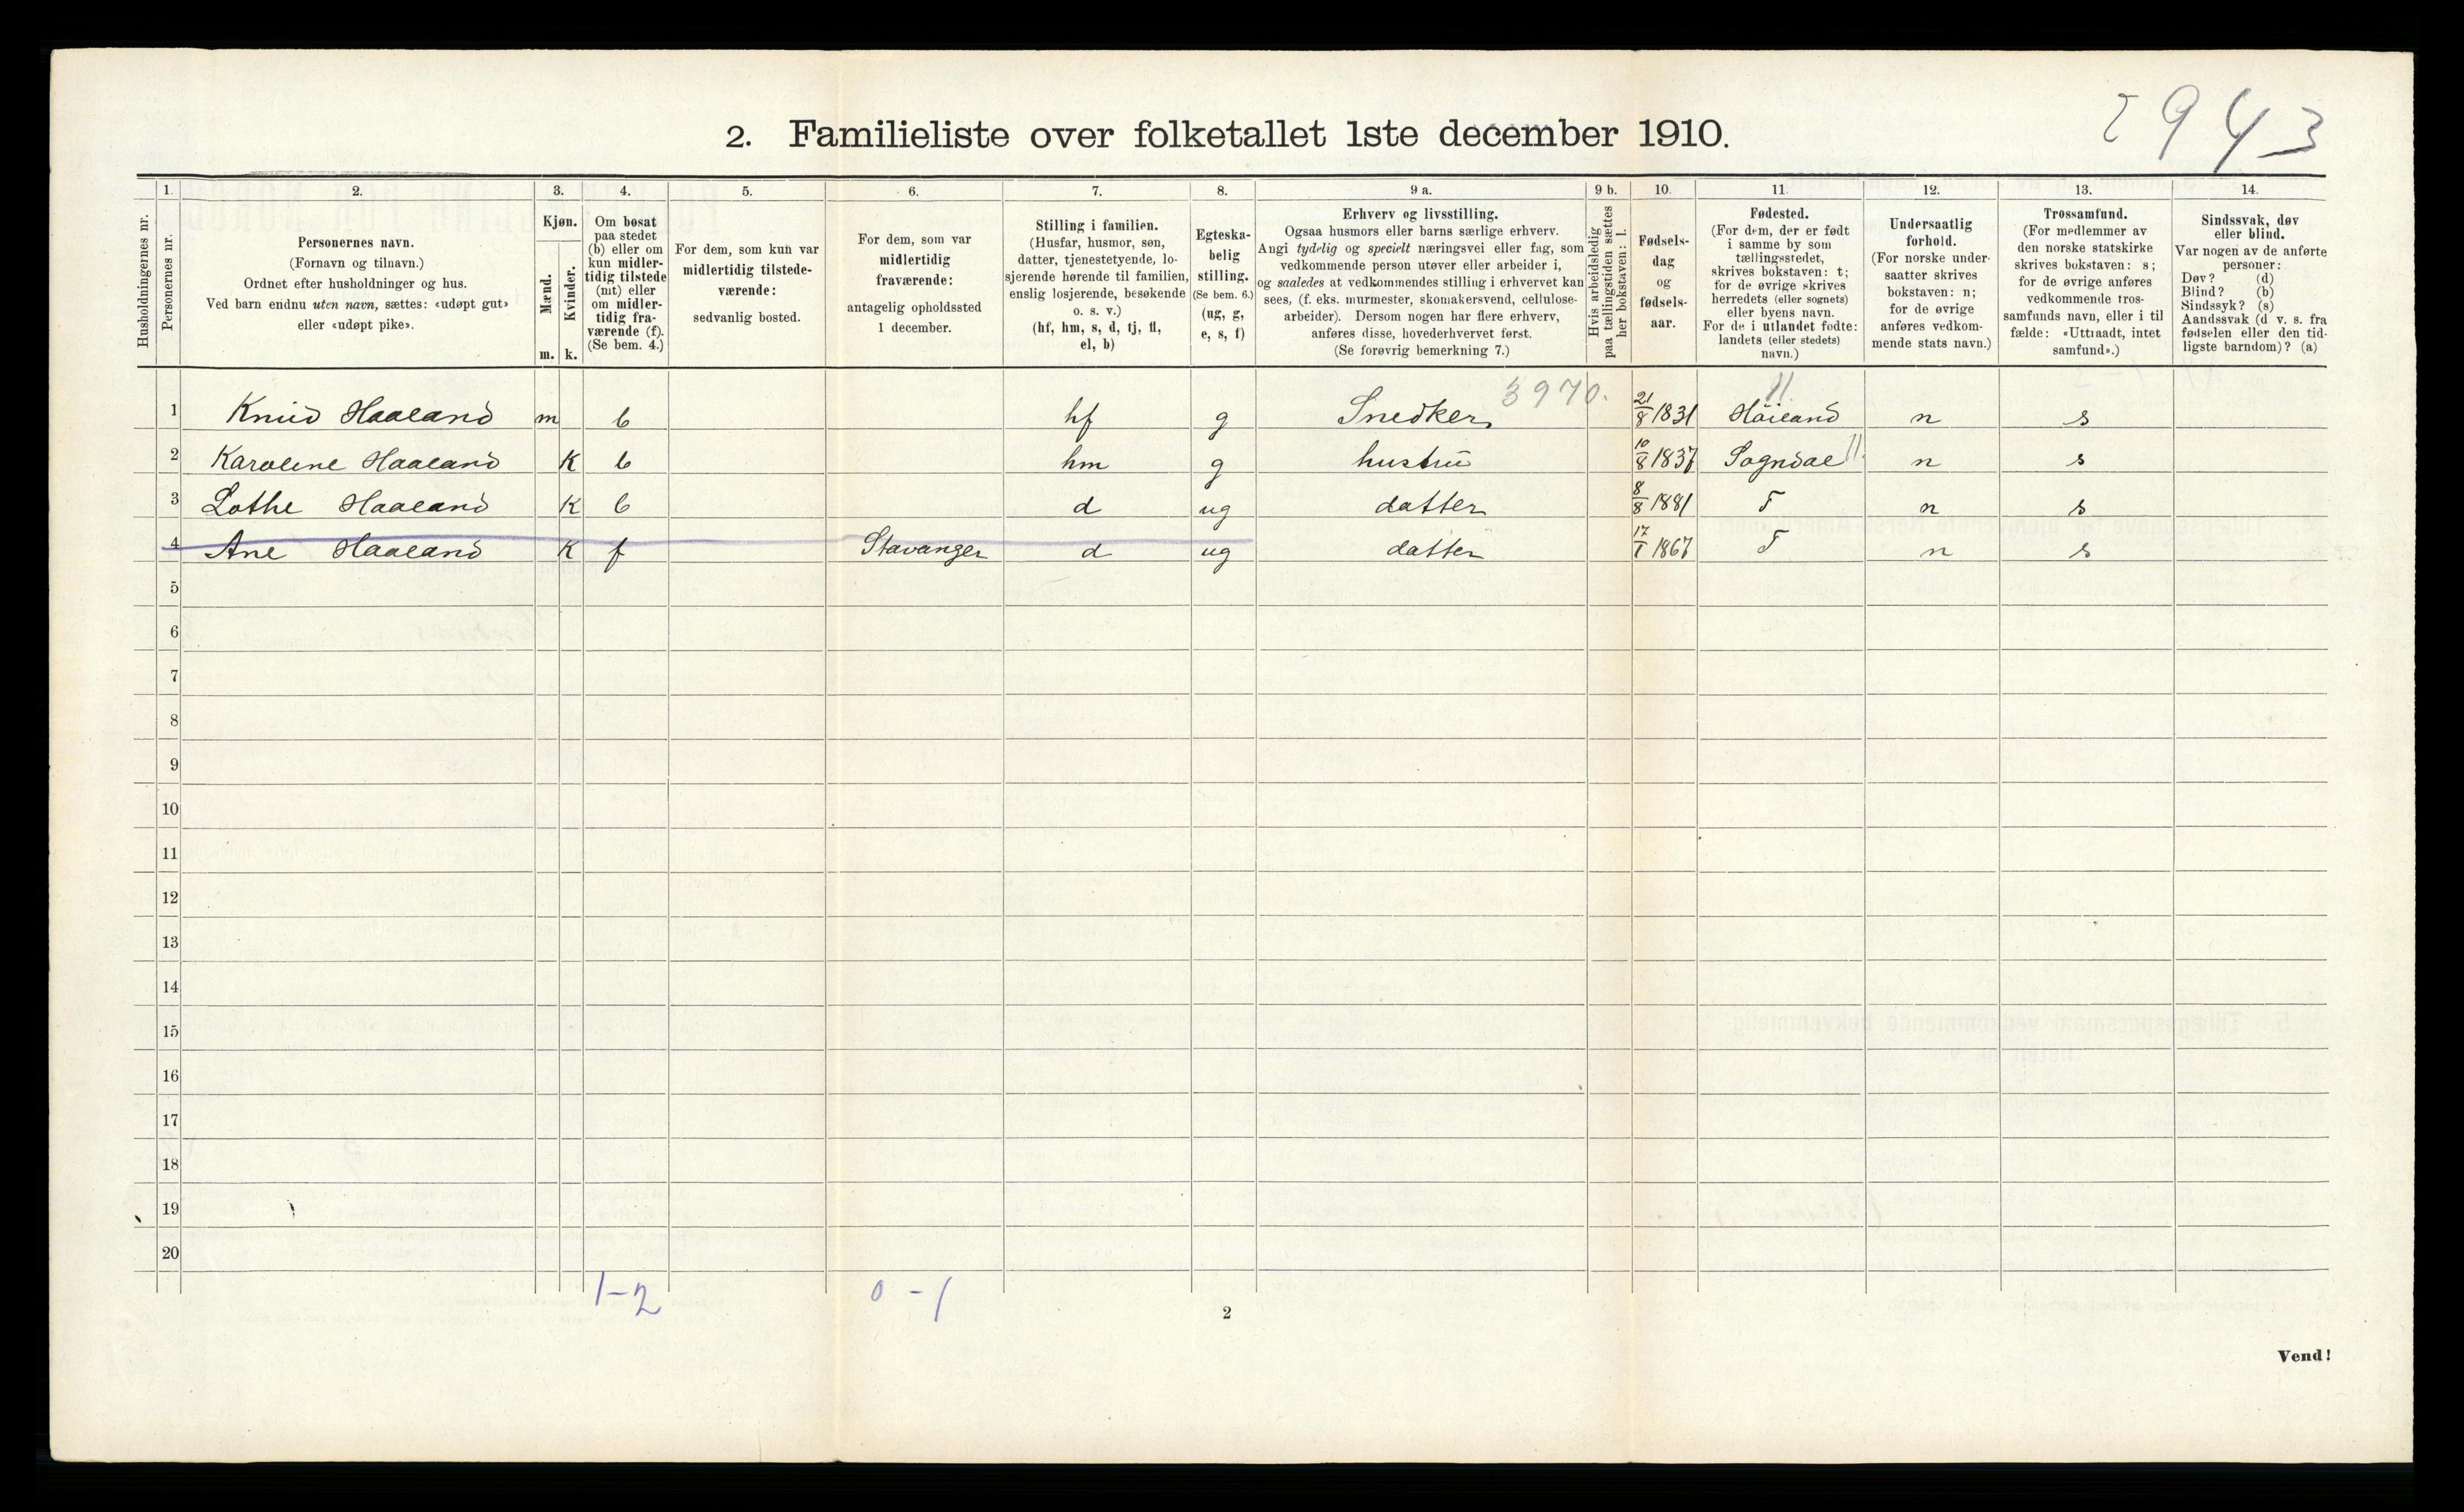 2943
2. Familieliste over folketallet 1ste december 1910.
Husholdningernes nr.
1.
Personernes nr.
2.
Personernes navn.
(Fornavn og tilnavn.)
Ordnet efter husholdninger og hus.
Ved barn endnu uten navn, sættes: «udøpt gut»
eller «udøpt pike».
3.
Kjøn.
Mænd.
Kvinder.
m. k.
4.
Om bosat
paa stedet
(b) eller om
kun midler-
tidig tilstede
(mt) eller
om midler-
tidig fra-
værende (f).
(Se bem. 4.)
5.
For dem, som kun var
midlertidig tilstede-
værende:
sedvanlig bosted.
6.
For dem, som var
midlertidig
fraværende:
antagelig opholdssted
1 december.
7.
Stilling i familien.
(Husfar, husmor, søn,
datter, tjenestetyende, lo-
sjerende hørende til familien,
enslig losjerende, besøkende
o. s. v.)
(hf, hm, s, d, tj, fl,
el, b)
8.
Egteska-
belig
stilling.
(Se bem. 6.)
(ug, g,
e, s, f)
9 a.
Erhverv og livsstilling.
Ogsaa husmors eller barns særlige erhverv.
Angi tydelig og specielt næringsvei eller fag, som
vedkommende person utøver eller arbeider i,
og saaledes at vedkommendes stilling i erhvervet kan
sees, (f. eks. murmester, skomakersvend, cellulose-
arbeider). Dersom nogen har flere erhverv,
anføres disse, hovederhvervet først.
(Se forøvrig bemerkning 7.)
9 b.
Hvis arbeidsledig
paa tællingstiden sættes
her bokstaven: l.
10.
Fødsels-
dag
og
fødsels-
aar.
11.
Fødested.
(For dem, der er født
i samme by som
tællingsstedet,
skrives bokstaven: t;
for de øvrige skrives
herredets (eller sognets)
eller byens navn.
For de i utlandet fødte:
landets (eller stedets)
navn.)
12.
Undersaatlig
forhold.
(For norske under-
saatter skrives
bokstaven: n;
for de øvrige
anføres vedkom-
mende stats navn.)
13.
Trossamfund.
(For medlemmer av
den norske statskirke
skrives bokstaven: s;
for de øvrige anføres
vedkommende tros-
samfunds navn, eller i til
fælde: «Uttraadt, intet
samfund».)
14.
Sindssvak, døv
eller blind.
Var nogen av de anførte
personer:
Døv? (d)
Blind? (b)
Sindssyk? (s)
Aandssvak (d v. s. fra
fødselen eller den tid-
ligste barndom)? (a)
3970. 11.
1 Knud Haaland m b hf g Snedker 21/8 1831 Höiland n s
2 Karoline Haaland K b hm g hustru 10/8 1837 Sogndal 11. n s
3 Lothe Haaland K b d ug datter 8/8 1881 T n s
4 Ane Haaland K f Stavanger d ug datter 17/1 1867 T n s
5
6
7
8
9
10
11
12
13
14
15
16
17
18
19
20
1-2 0-1
2
Vend!